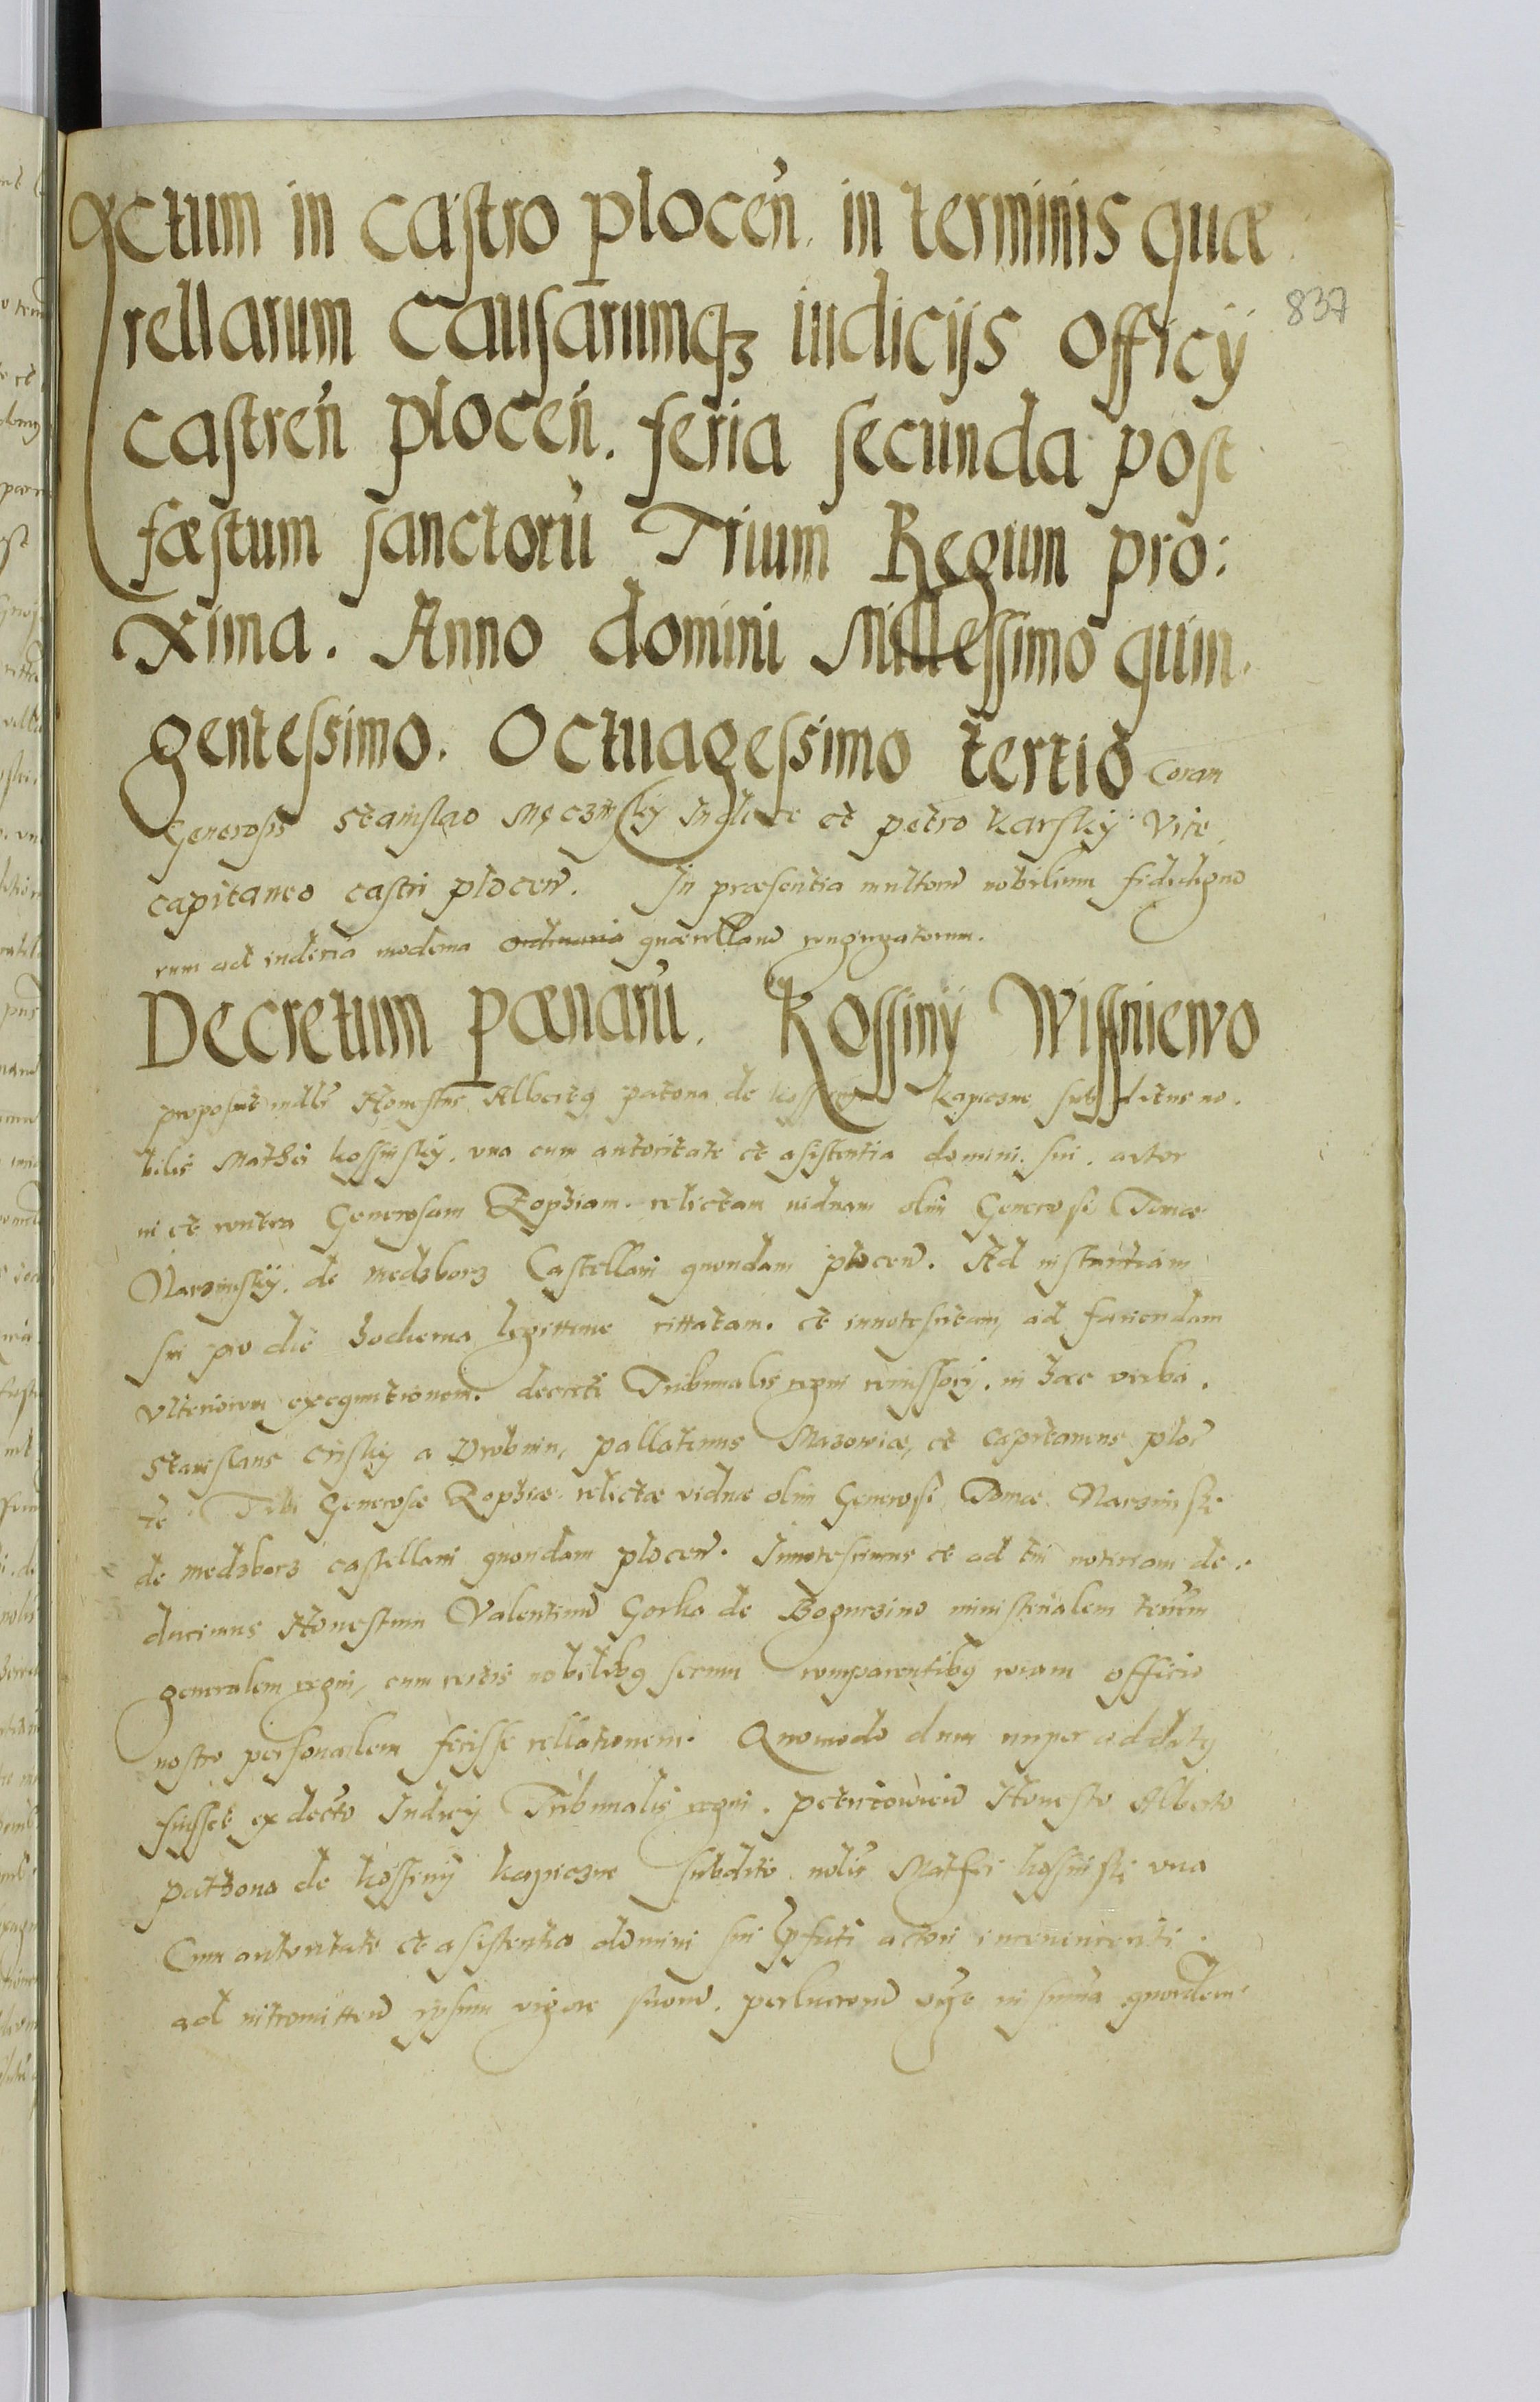 Actum in castro plocen̄. in terminis quæ
rellarum causarumqȝ iudicijs officÿ
837
castren̄ plocen̄. feria secunda post
fæstum sanctorū Trium Regum pro:
xima. Anno domini Millessimo quin.
gentessimo. Octuagessimo tertio Coram
Generosis Stanislao Męczinsky Iudice et petro karsky Vice
capitaneo castri plocen̄. In præsentia multorū nobilium fidedigno
rum ad iudicia moderna ordinaria quærellarū congregatorum.
Decretum pænarū. Kossiny Wissniewo
proposuit Honestus Albertꝰ patzona de kossiny kapiczne subditus no.
bilis Mathei kossinsky. una cum autoritate et asistentia domini sui. actor
in et contra Generosam Zophiam. relictam viduam olim Generosi Tomæ
Narzinsky. de medzborz Castellani quondam plocen̄. Ad instantiam
sui pro die hodierna legittime cittatam. et innotescitam, ad faciendam
ulteriorem exequutionem. decreti Tribunalis regni remissorÿ. in hæc verba.
Stanislaus crisky a Drobnin, pallatinus Mazowiæ, et capitaneus ploc̄
te Tibi Generosæ Zophiæ relictæ viduæ olim Generosi Tomæ Narzinski
de medzborz castellani quondam plocen̄. Innotescimus et ad tui notitiam de.
ducimus Honestum Valentinū Gorka de Boguczino ministerialem
generalem regni, cum certis nobilibꝰ secum comparentibꝰ coram officio
nostro personalem fecisse rellationem. Quomodo dum nuper additꝰ
fuisset ex dec̄to Iudicÿ Tribunalis regni. petricowien̄ Honesto Alberto
patzona de kossiny kapiczne subdito nobilis Mathei kossinski una
Cum autoritate et asistentia domini sui actori
ad intromitten̄ ipsum vigore suorū. perlucrorū in summa quordem